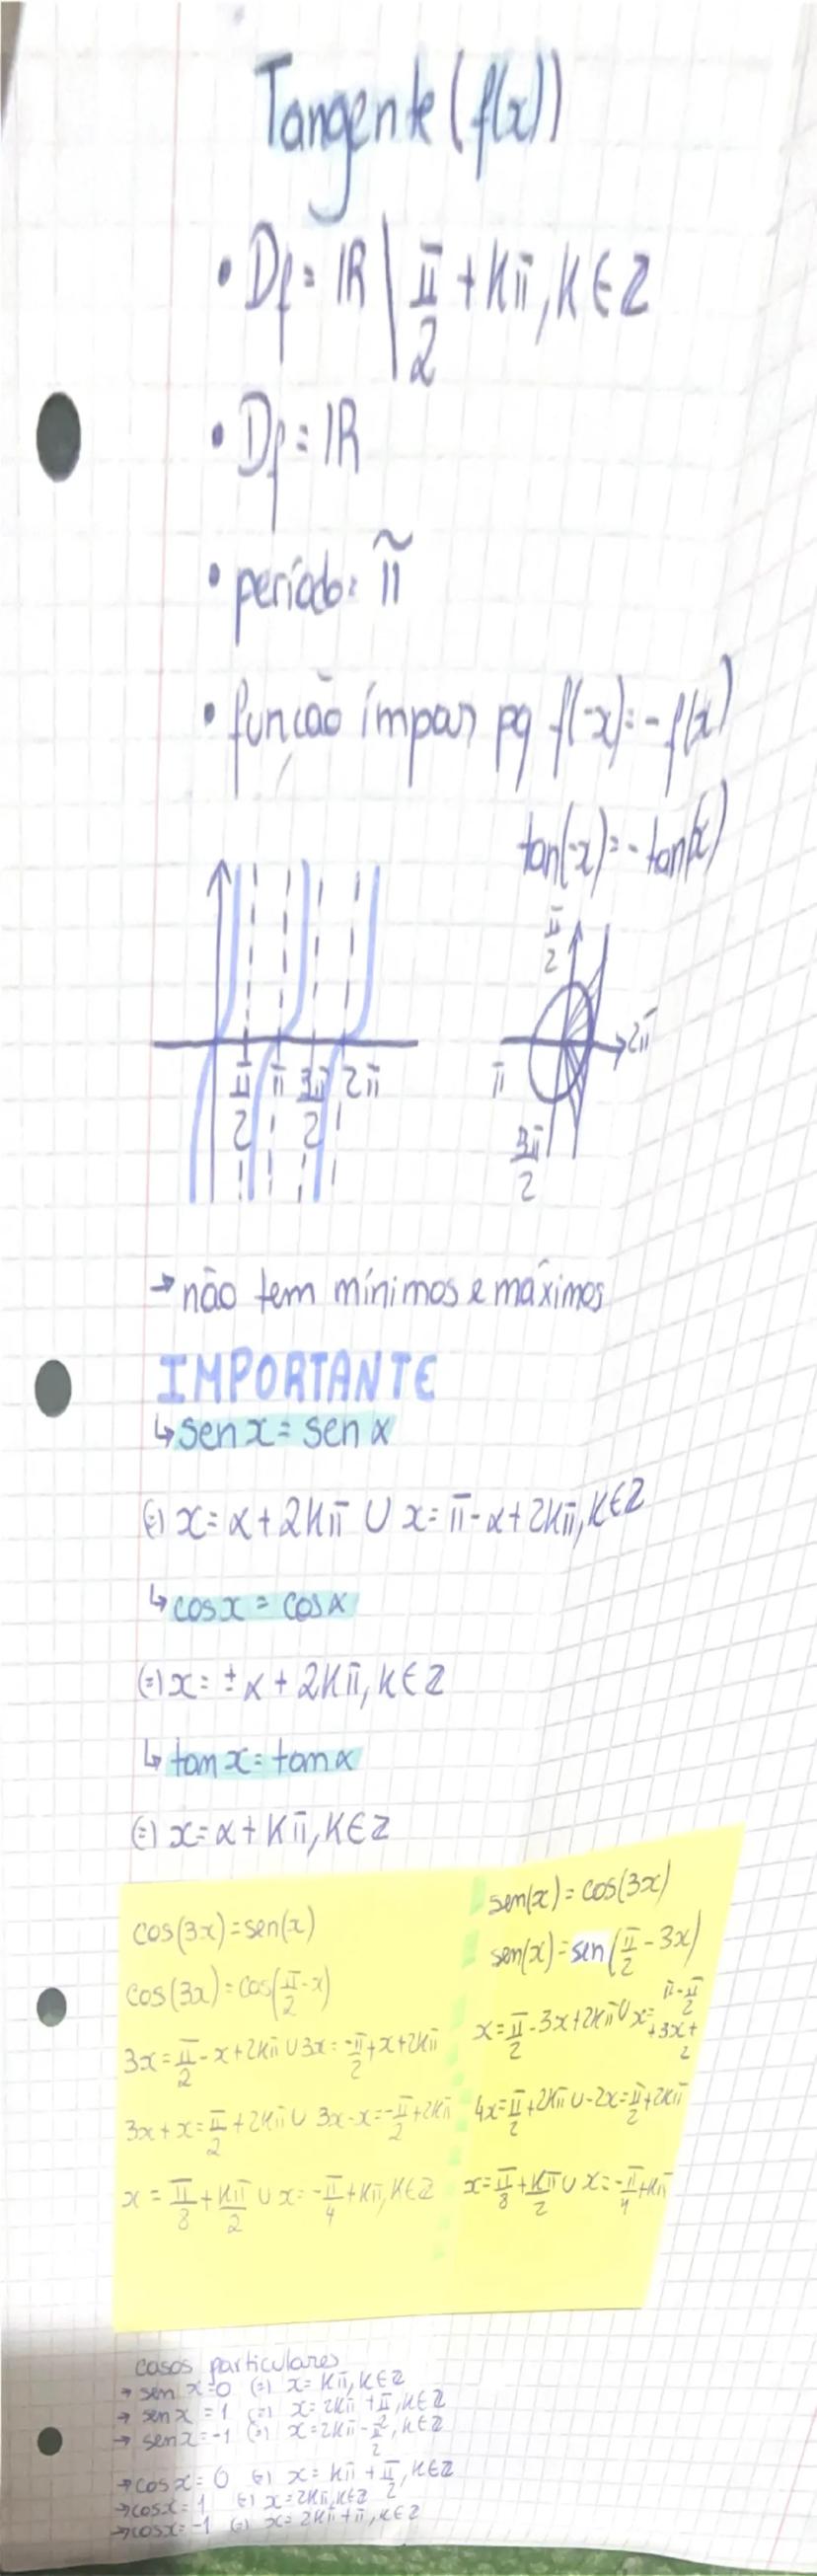 Tangente (f(x))
• Df = IR \ π/2 + Kπ, K ∈ Z
• Df = IR
• período: π
• função ímpar pq f(-x) = -f(x)
tan(-x) = -tan(x)
π/2 π 3π/2 2π
π/2
2π
π
3π/2
→ não tem mínimos e máximos
IMPORTANTE
↳ sen x = sen α
(=) x = α + 2Kπ ∪ x = π - α + 2Kπ, K ∈ Z
↳ cos x = cos α
(=) x = ± α + 2Kπ, K ∈ Z
↳ tan x = tan α
(=) x = α + Kπ, K ∈ Z
cos(3x) = sen(x)
cos(3x) = cos(π/2 - x)
3x = π/2 - x + 2Kπ ∪ 3x = -π/2 + x + 2Kπ
3x + x = π/2 + 2Kπ ∪ 3x - x = -π/2 + 2Kπ
x = π/8 + Kπ/2 ∪ x = -π/4 + Kπ, K ∈ Z
sen(x) = cos(3x)
sen(x) = sen(π/2 - 3x)
x = π/2 - 3x + 2Kπ ∪ x = π - π/2
+3x +
4x = π/2 + 2Kπ ∪ -2x = π/2 + 2Kπ
x = π/8 + Kπ/2 ∪ x = -π/4 + Kπ
casos particulares
→ sen x = 0 (=) x = Kπ, K ∈ Z
→ sen x = 1 (=) x = 2Kπ + π/2, K ∈ Z
→ sen x = -1 (=) x = 2Kπ - π/2, K ∈ Z
→ cos x = 0 (=) x = Kπ + π/2, K ∈ Z
→ cos x = 1 (=) x = 2Kπ, K ∈ Z
→ cos x = -1 (=) x = 2Kπ + π, K ∈ Z